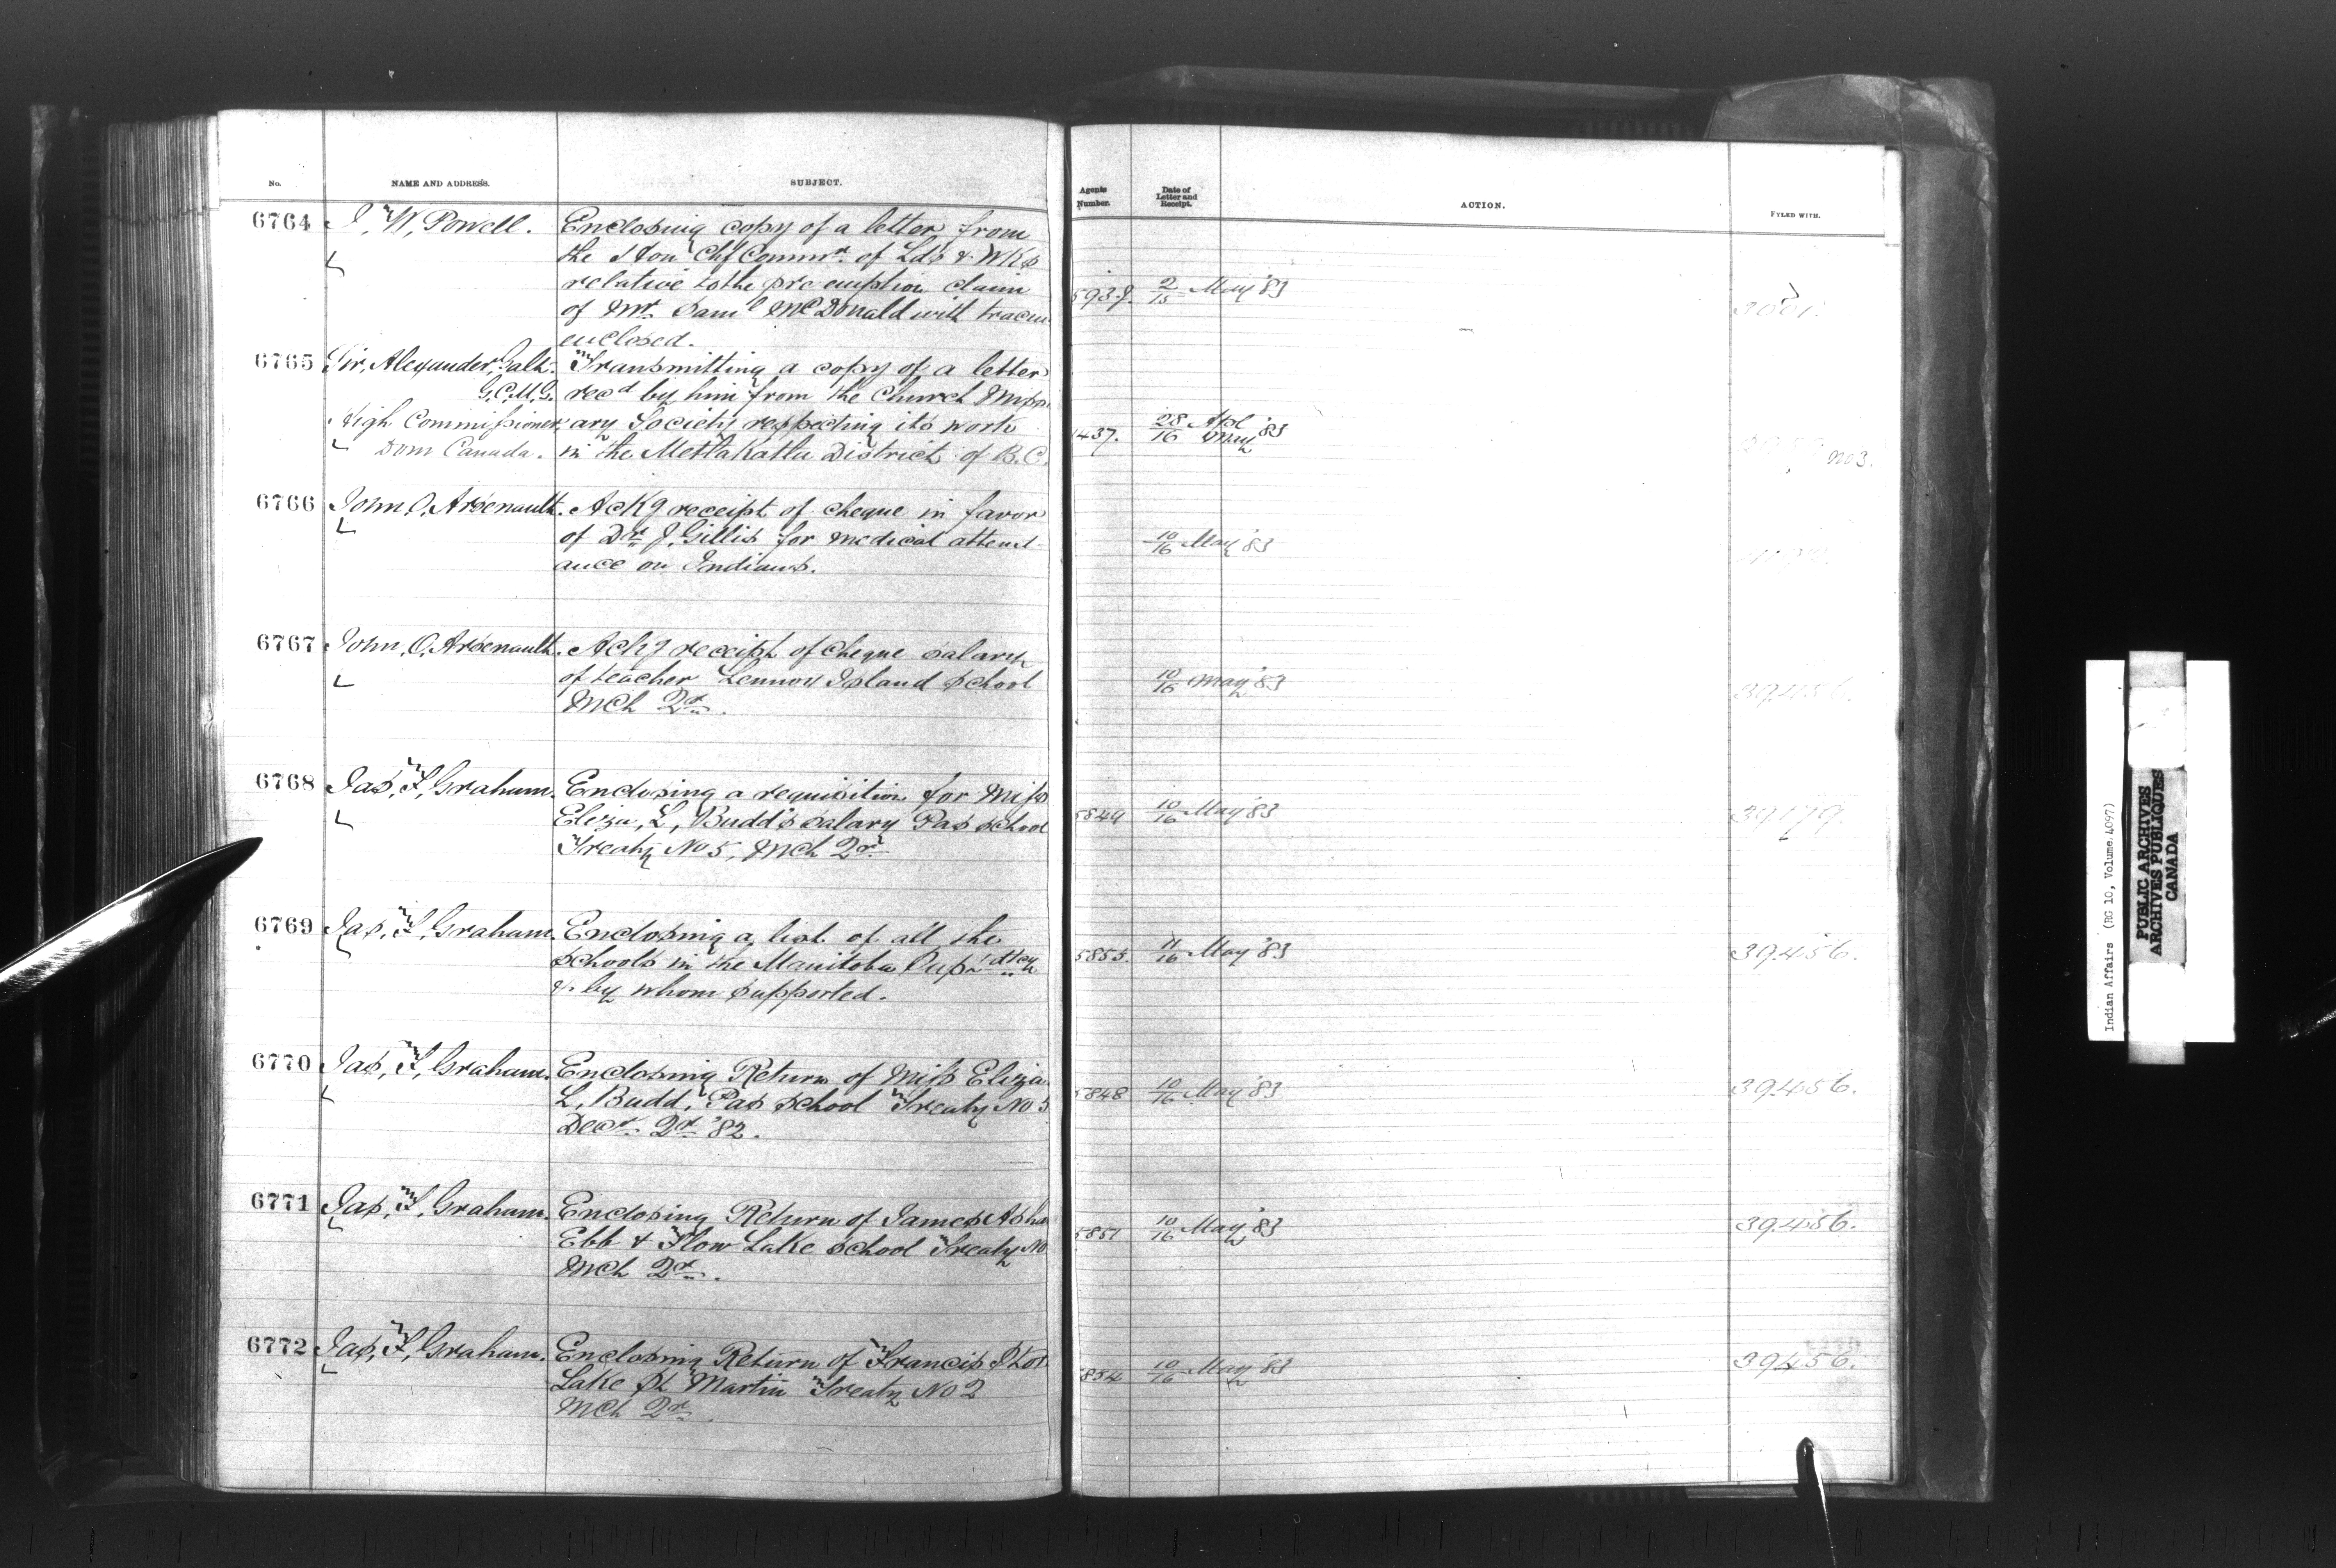 No. NAME AND ADDRESS. SUBJECT. Agents Number. Date of Letter and Receipt. ACTION. FYLED WITH.
6764 I, W, Powell. Enclosing copy of a letter from
the Hon Chf Commr. of Lds & Wks
relative to the pre emption claim
of Mr. Saml McDonald with
enclosed.
2/15 May '83
6765 Sir, Alexander, Galt. Transmitting a copy of a letter
G.C.M.G. recd by him from the Church Miss
High Commissioner, ary Society respecting its work
Dom Canada. in the Mettakatla District of B.C.
1437. 28/16 Apl May '83 No 3.
6766 John O, Arsenault. Ackg receipt of cheque in favor
of Dr. J, Gillis for medical attend-
ance on Indians.
10/16 May '83
6767 John, O, Arsenault. Ackg receipt of cheque salary
of teacher Lennox Island School
Mch Qr.
10/16 May '83 39456.
6768 Jas, F, Graham. Enclosing a requisition for Miss
Eliza, L, Budd's salary Pas School
Treaty No 5, Mch Qr.
5849 10/16 May '83 39179.
6769 Jas, F, Graham. Enclosing a list of all the
schools in the Manitoba
& by whom supported.
5853. 11/16 May '83 39456.
6770 Jas, F, Graham. Enclosing Return of Miss Eliza
L, Budd, Pas School Treaty No 5
Decr. Qr. '82.
5848 10/16 May '83 39456.
6771 Jas, F, Graham. Enclosing Return of James
Ebb & Flow Lake School Treaty No
Mch Qr.
5851 10/16 May '83 39456.
6772 Jas, F, Graham. Enclosing Return of Francis
Lake St Martin Treaty No 2
Mch Qr.
854 10/16 May '83 39456.
Indian Affairs (RG 10, Volume 4097)
PUBLIC ARCHIVES
ARCHIVES PUBLIQUES
CANADA